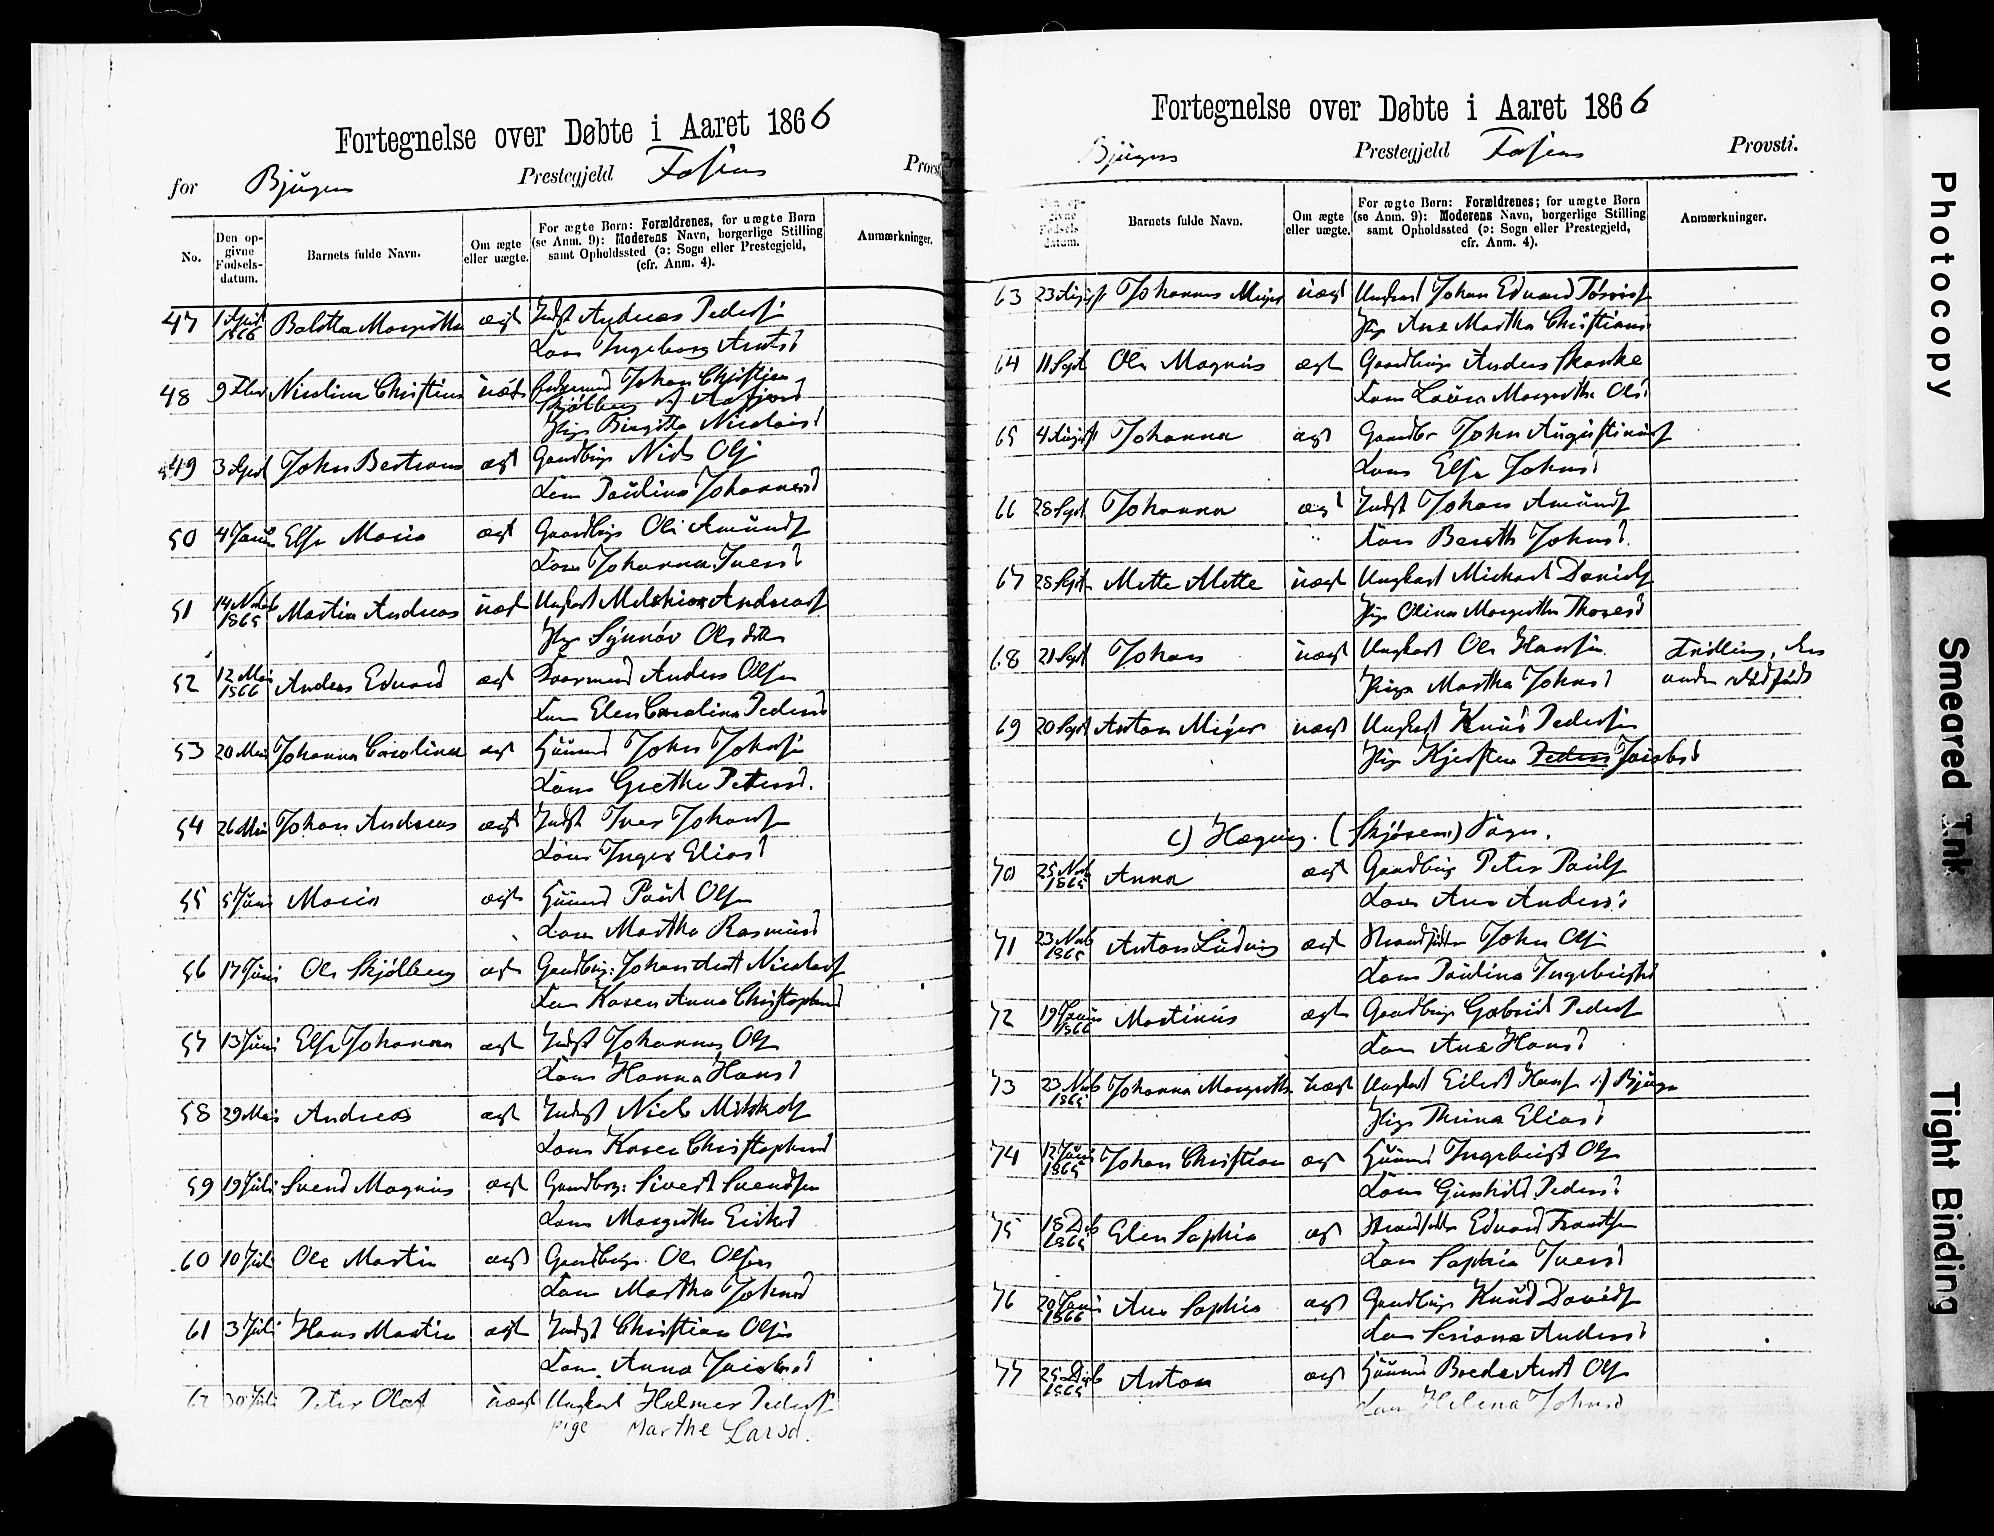 Fortegnelse over Døbte i Aaret 1866
for Bjugns Prestegjeld Fosens Provsti
No.
Den op-
givne
Fødsels-
datum.
Barnets fulde Navn.
Om ægte
eller uægte.
For ægte Børn: Forældrenes, for uægte Børn
(se Anm. 9): Moderens Navn, borgerlige Stilling
samt Opholdssted (ɔ: Sogn eller Prestegjeld,
(cfr. Anm. 4).
Anmærkninger.
47 1 April 1866 Margrethe ægt Indst Andreas Peders
Kone Ingeborg
48 9 Nicoline Christine uægt Johan Christian
Skjølberg af Aafjord
Pige Birgitte Nicolaisd
49 3 April John ægt Gaardbrug Niels Ols
Kone Paulina Johannesd
50 4 Else Maria ægt Gaardbrug Ole Amunds
Kone Johanna Iversd
51 14 Novb 1865 Martin Andreas uægt Ungkarl Andreas
Pige Synnøv Olsdtter
52 12 Mai 1866 Anders Edvard ægt Anders Olsen
Kone Elen Carolina Pedersd
53 20 Mai Johanna Carolina ægt Huusmd John Johnsen
Kone Grethe Petersd.
54 26 Mai Johan Andreas ægt Indst Iver Johans
Kone Inger Eliasd
55 5 Juni Maria ægt Huusmd Paul Olsen
Kone Martha Rasmusd
56 17 Juni Ole Skjølberg ægt Gaardbrug: Johan Arnt Nicolais
Kone Karen Anna Christophersd
57 13 Juni Else Johanna ægt Indst Johannes Ols
Kone Hanna Hansd
58 29 Mai Andreas ægt Indst Niels
Kone Karen Christophersd
59 19 Juli Svend Magnus ægt Gaardbrg: Sivert Svendsen
Kone Margrethe Eriksd
60 10 Juli Ole Martin ægt Gaardbrug Ole Olsen
Kone Martha Johnsd
61 3 Juli Hans Martin ægt Indst Christian Olsen
Kone Anna Jacobsd
62 30 Juli Peter Olaf uægt Ungkarl Helmer Peders
pige Marthe Larsd.
Fortegnelse over Døbte i Aaret 1866
Bjugns Prestegjeld Fosens Provsti.
Den op-
givne
Fødsels
datum.
Barnets fulde Navn.
Om ægte
eller uægte.
For ægte Børn: Forældrenes; for uægte Børn
(se Anm. 9): Moderens Navn, borgerlige Stilling
samt Opholdssted (ɔ: Sogn eller Prestegjeld,
cfr. Anm. 4).
Anmærkninger.
63 23 August Johannes Meyer uægt Ungkarl Johan Edvard
Pige Ane Martha Christians
64 11 Sept Ole Magnus ægt Gaardbrug Anders Skanke
Kone Laura Margrethe Olsd
65 4 August Johanna ægt Gaardbr John Augustinus
Kone Else Johnsd
66 28 Sept Johanna ægt Indst Johan Amunds
Kone Bereth Johnsd.
67 28 Sept Mette Alette uægt Ungkarl Mickael Daniels
Pige Olina Margrethe Thoresd
68 21 Sept Johan uægt Ungkarl Ole Hansen Tvilling, den
Pige Martha Johnsd anden dødfødt
69 20 Sept Anton Meyer uægt Ungkarl Knud Pedersen
Pige Kjersten Peders Jacobsd
c) Hegvig. (Skjøren) Sogn.
70 25 Novb 1865 Anna ægt Gaardbrug Peter Pauls
Kone Ane Andersd
71 23 Novb 1865 Anton Ludvig ægt Strandsidder John Ols
Kone Paulina Ingebrigtsd
72 19 1866 Martinus ægt Gaardbrug Gabriel Peders
Kone Ane Hansd
73 23 Novb 1865 Johanna Margrethe uægt Ungkarl Eilert Hans af Bjugn
Pige Thrina Eliasd
74 12 Juni 1865 Johan Christian ægt Huusmd Ingebrigt Ols
Kone Gunhild Pedersd
75 18 Deb 1865 Elen Sophia ægt Strandsidder Edvard Frantsen
Kone Sophia Iversd
76 20 1866 Ane Sophia ægt Gaardbrug Knud Davids
Kone Seriana Andersd
77 25 Deb 1865 Anton ægt Huusmd Arnt Ols
Kone Helena Johnsd
Photocopy
Smeared Ink
Tight Binding